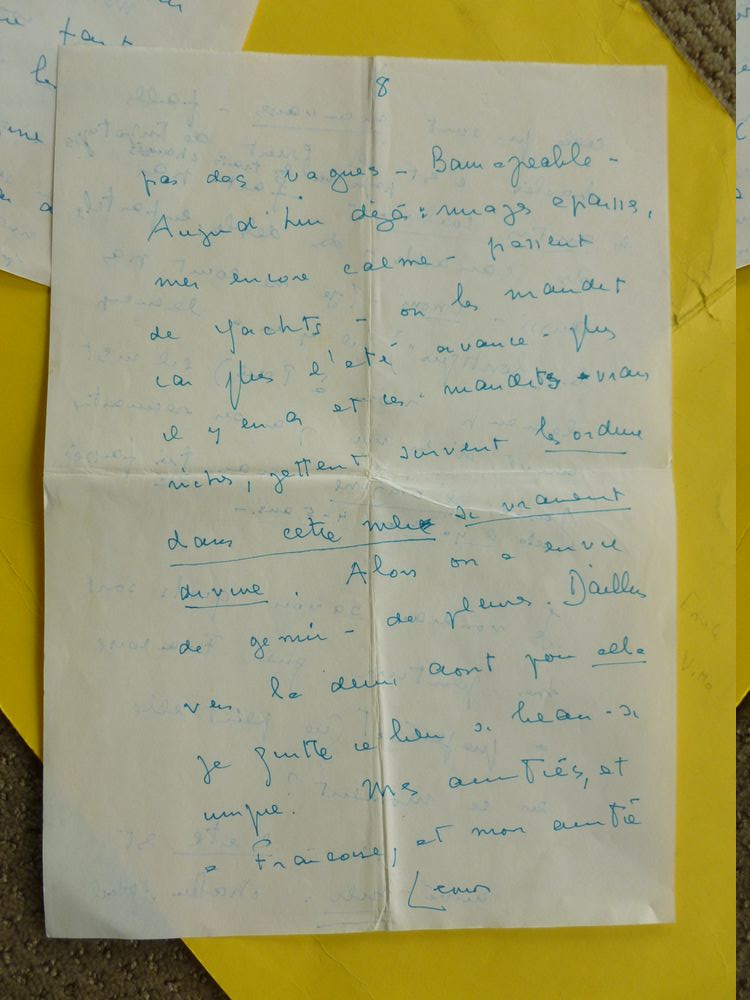 8
pas des vagues - Baignable -
Aujourd'hui déjà : nuages épars,
mer encore calme - passent
de yachts - on les maudit
car plus l'été avance - plus
il y en a et ces maudits
jettent souvent les ordures
dans cette mer si vraiment
divine. Alors on a envie
de gémir - de pleurer. D'ailleurs
vers le demi août pour elle
je quitte ce lieu si beau - si
unique. Mes amitiés, et
à Françoise, et mon amitié